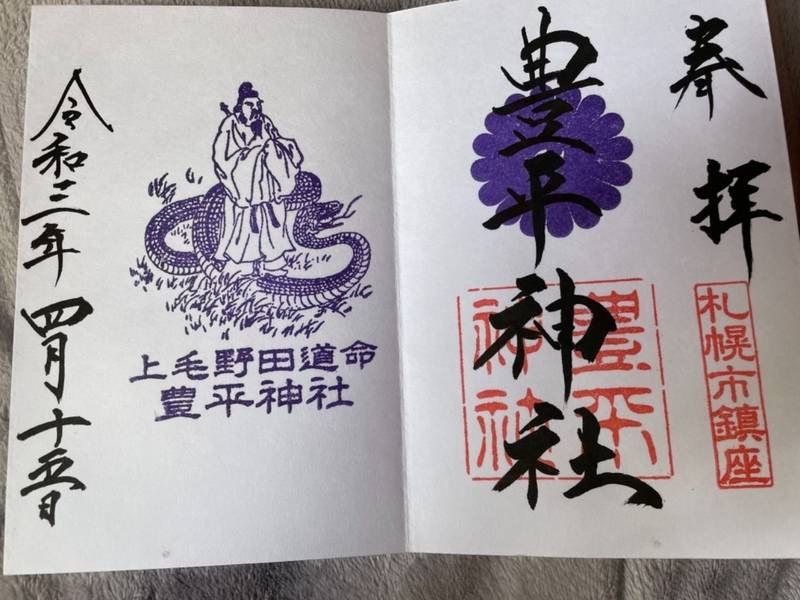 奉拝
豊平神社
豊平
神社
札幌市鎮座
上毛野田道命
豊平神社
令和三年四月十五日